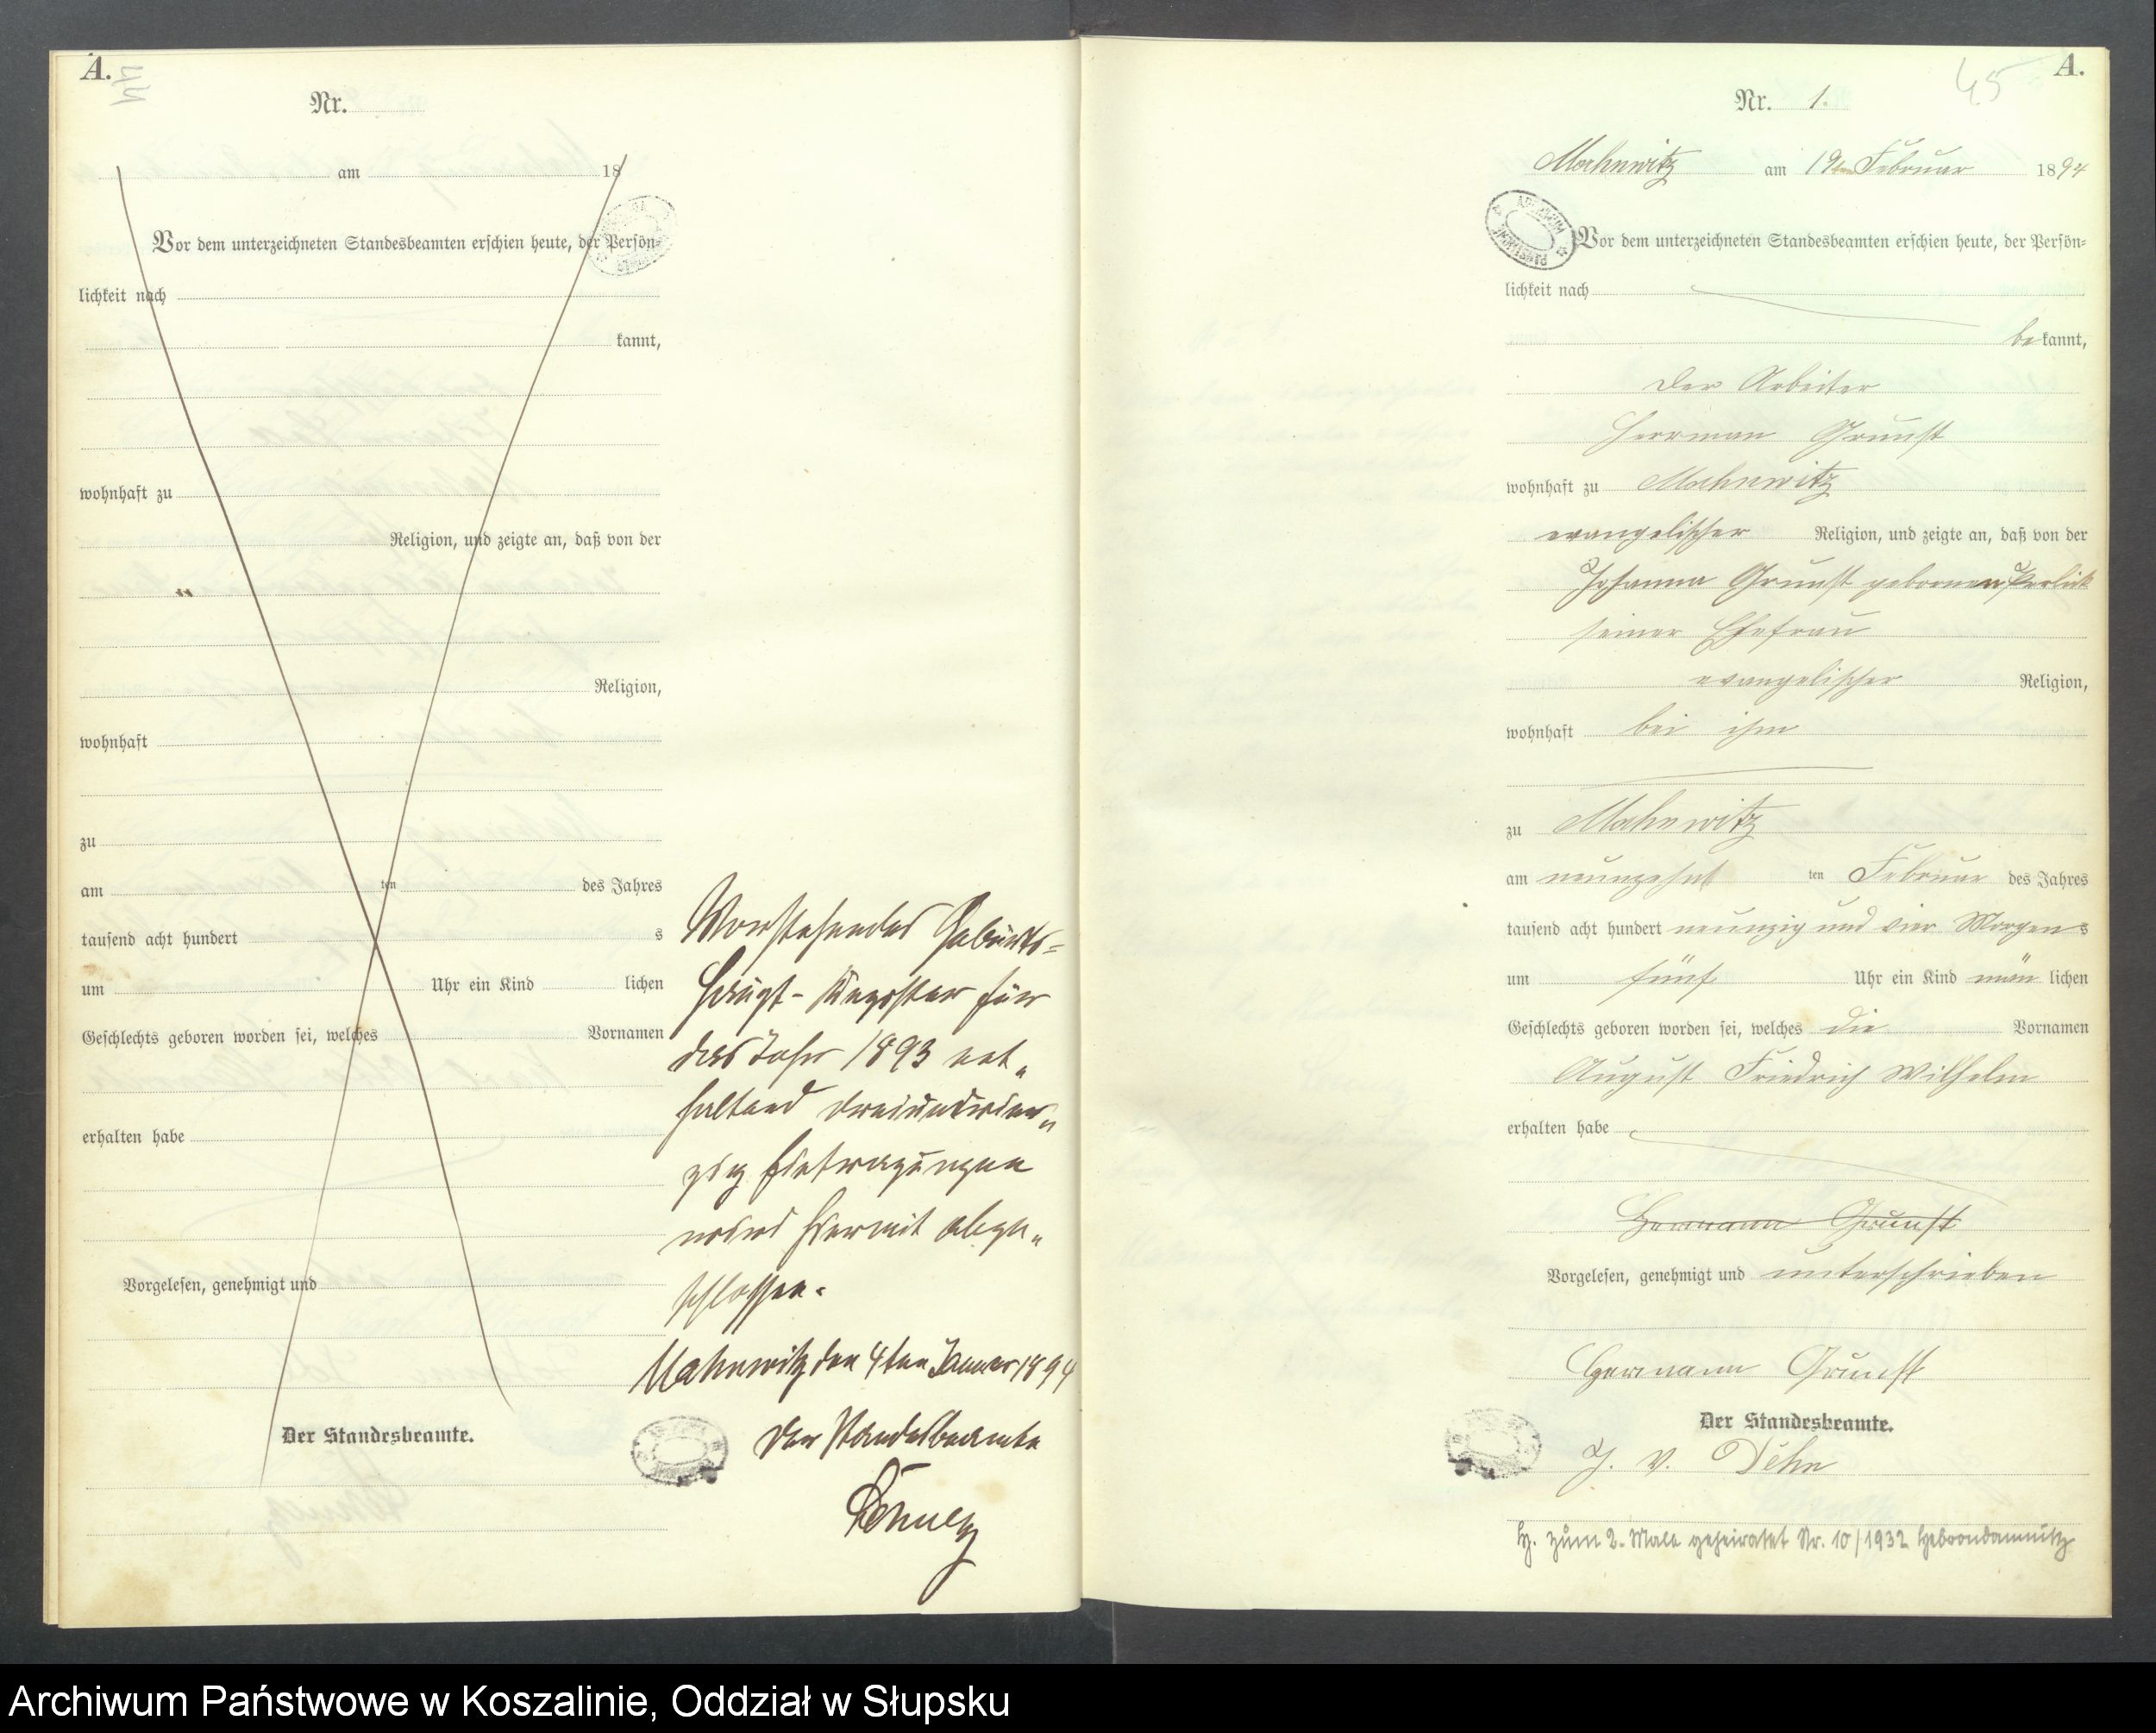 A.
44
Nr.
am 18
Vor dem unterzeichneten Standesbeamten erschien heute, der Persön-
lichkeit nach
kannt,
wohnhaft zu
Religion, und zeigte an, daß von der
Religion,
wohnhaft
zu
am ten des Jahres
tausend acht hundert s
um Uhr ein Kind lichen
Geschlechts geboren worden sei, welches Vornamen
erhalten habe
Vorgelesen, genehmigt und
Der Standesbeamte.
Vorstehendes Geburts-
Haupt-Register für
das Jahr 1893 ent-
haltend dreiundvier-
zig Eintragungen
wird hiermit abge-
schlossen.
Mahnwitz den 4ten Januar 1894
Der Standesbeamte
A.
45
Nr. 1.
Mahnwitz am 19ten Februar 1894
Vor dem unterzeichneten Standesbeamten erschien heute, der Persön-
lichkeit nach
bekannt,
der Arbeiter
Herrman Grunst
wohnhaft zu Mahnwitz
evangelischer Religion, und zeigte an, daß von der
Johanna Grunst gebornen
seiner Ehefrau
evangelischer Religion,
wohnhaft bei ihm
zu Mahnwitz
am neunzehnt ten Februar des Jahres
tausend acht hundert neunzig und vier Morgens
um fünf Uhr ein Kind mänlichen
Geschlechts geboren worden sei, welches die Vornamen
August Friedrich Wilhelm
erhalten habe
Hermann Grunst
Vorgelesen, genehmigt und unterschrieben
Hermann Grunst
Der Standesbeamte.
J. v. Dehn
H. zum 2. Male geheiratet Nr. 10/1932 Hebrondamnitz
Archiwum Państwowe w Koszalinie, Oddział w Słupsku